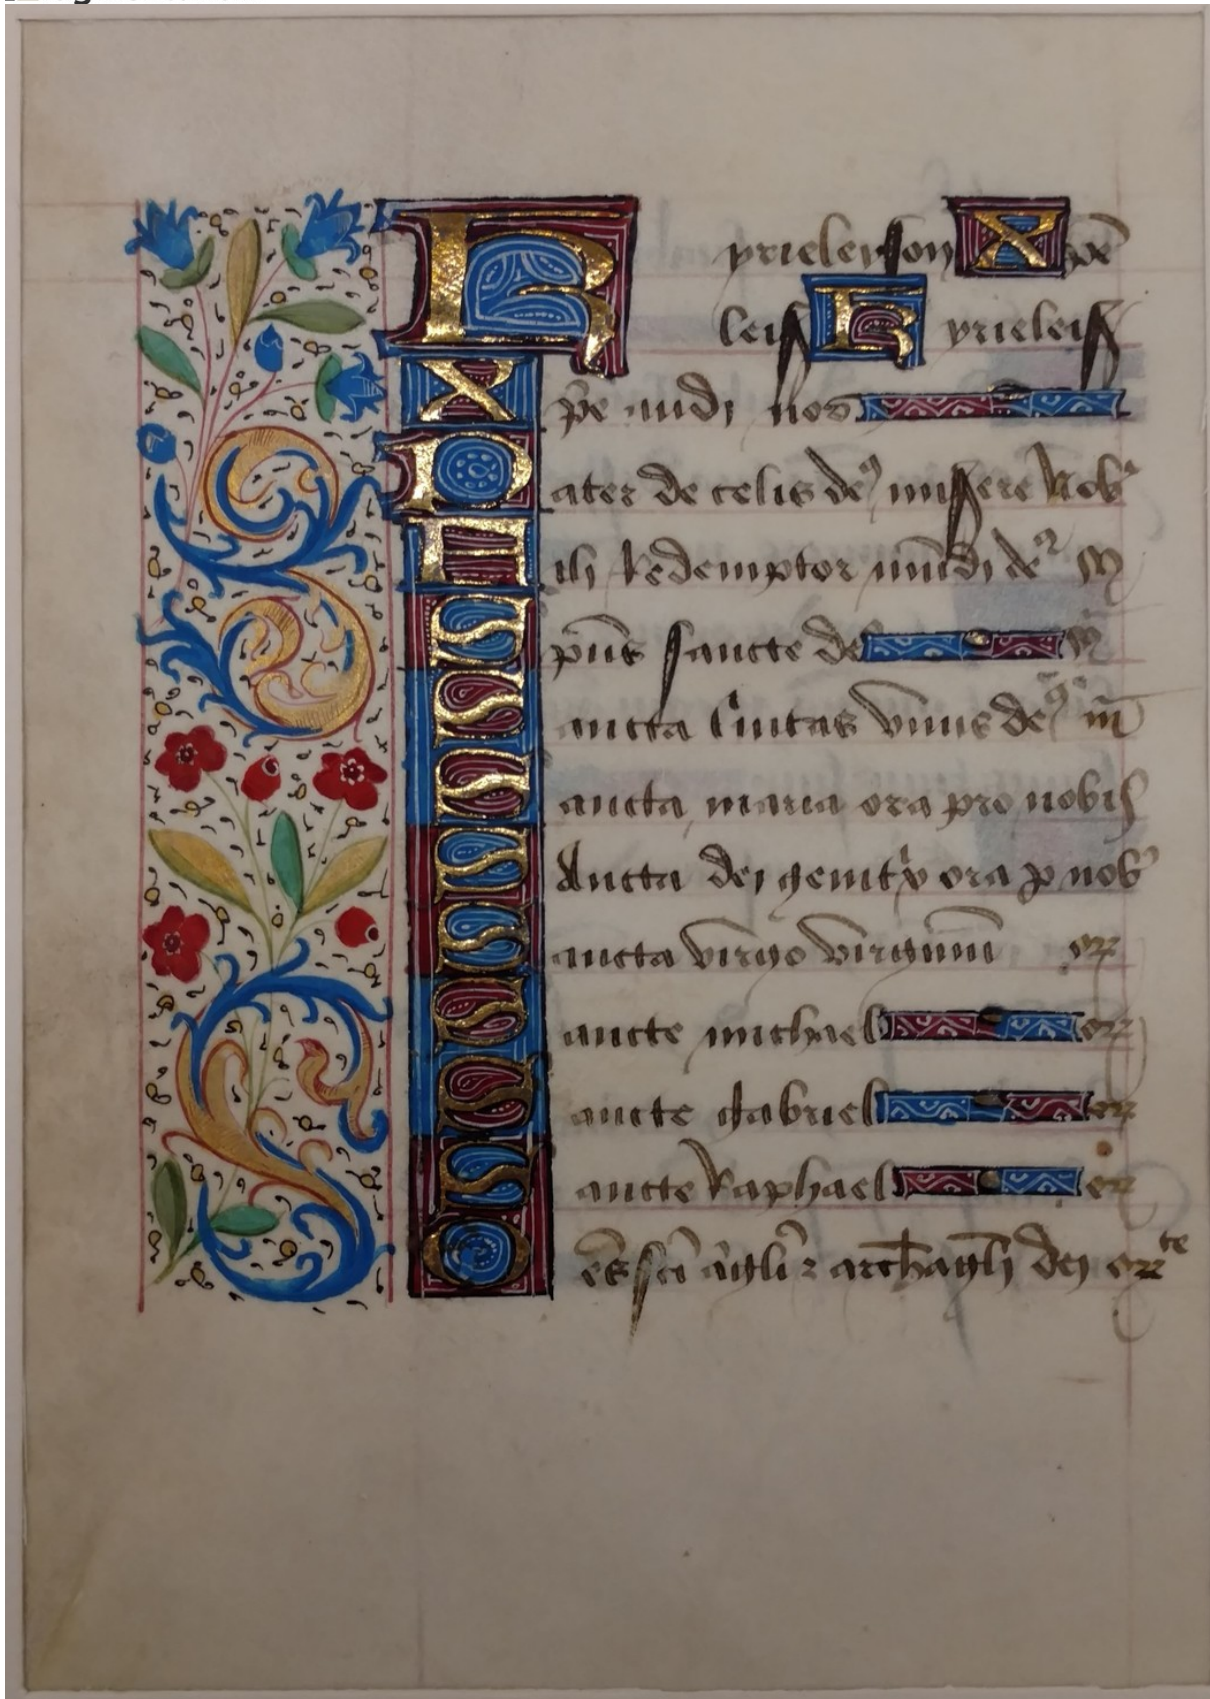 Kyrieleyson Xpē
leiſ Kyrieleiſ
Xpē audi nos
Pater de celis deꝰ miſerere nobˢ
Fili Redemptor mundi deꝰ m̄
Spūs sancte deꝰ m̄
Sancta t'nitas vnus deꝰ m̄
Sancta maria ora pro nobis
Sancta dei genitͥx ora ꝓ nobˢ
Sancta virgo virginū or
Sancte michael or
Sancte Gabriel or
Sancte Raphael or
Om̄s sc̄i angli ⁊ archāgli dei orᵗᵉ